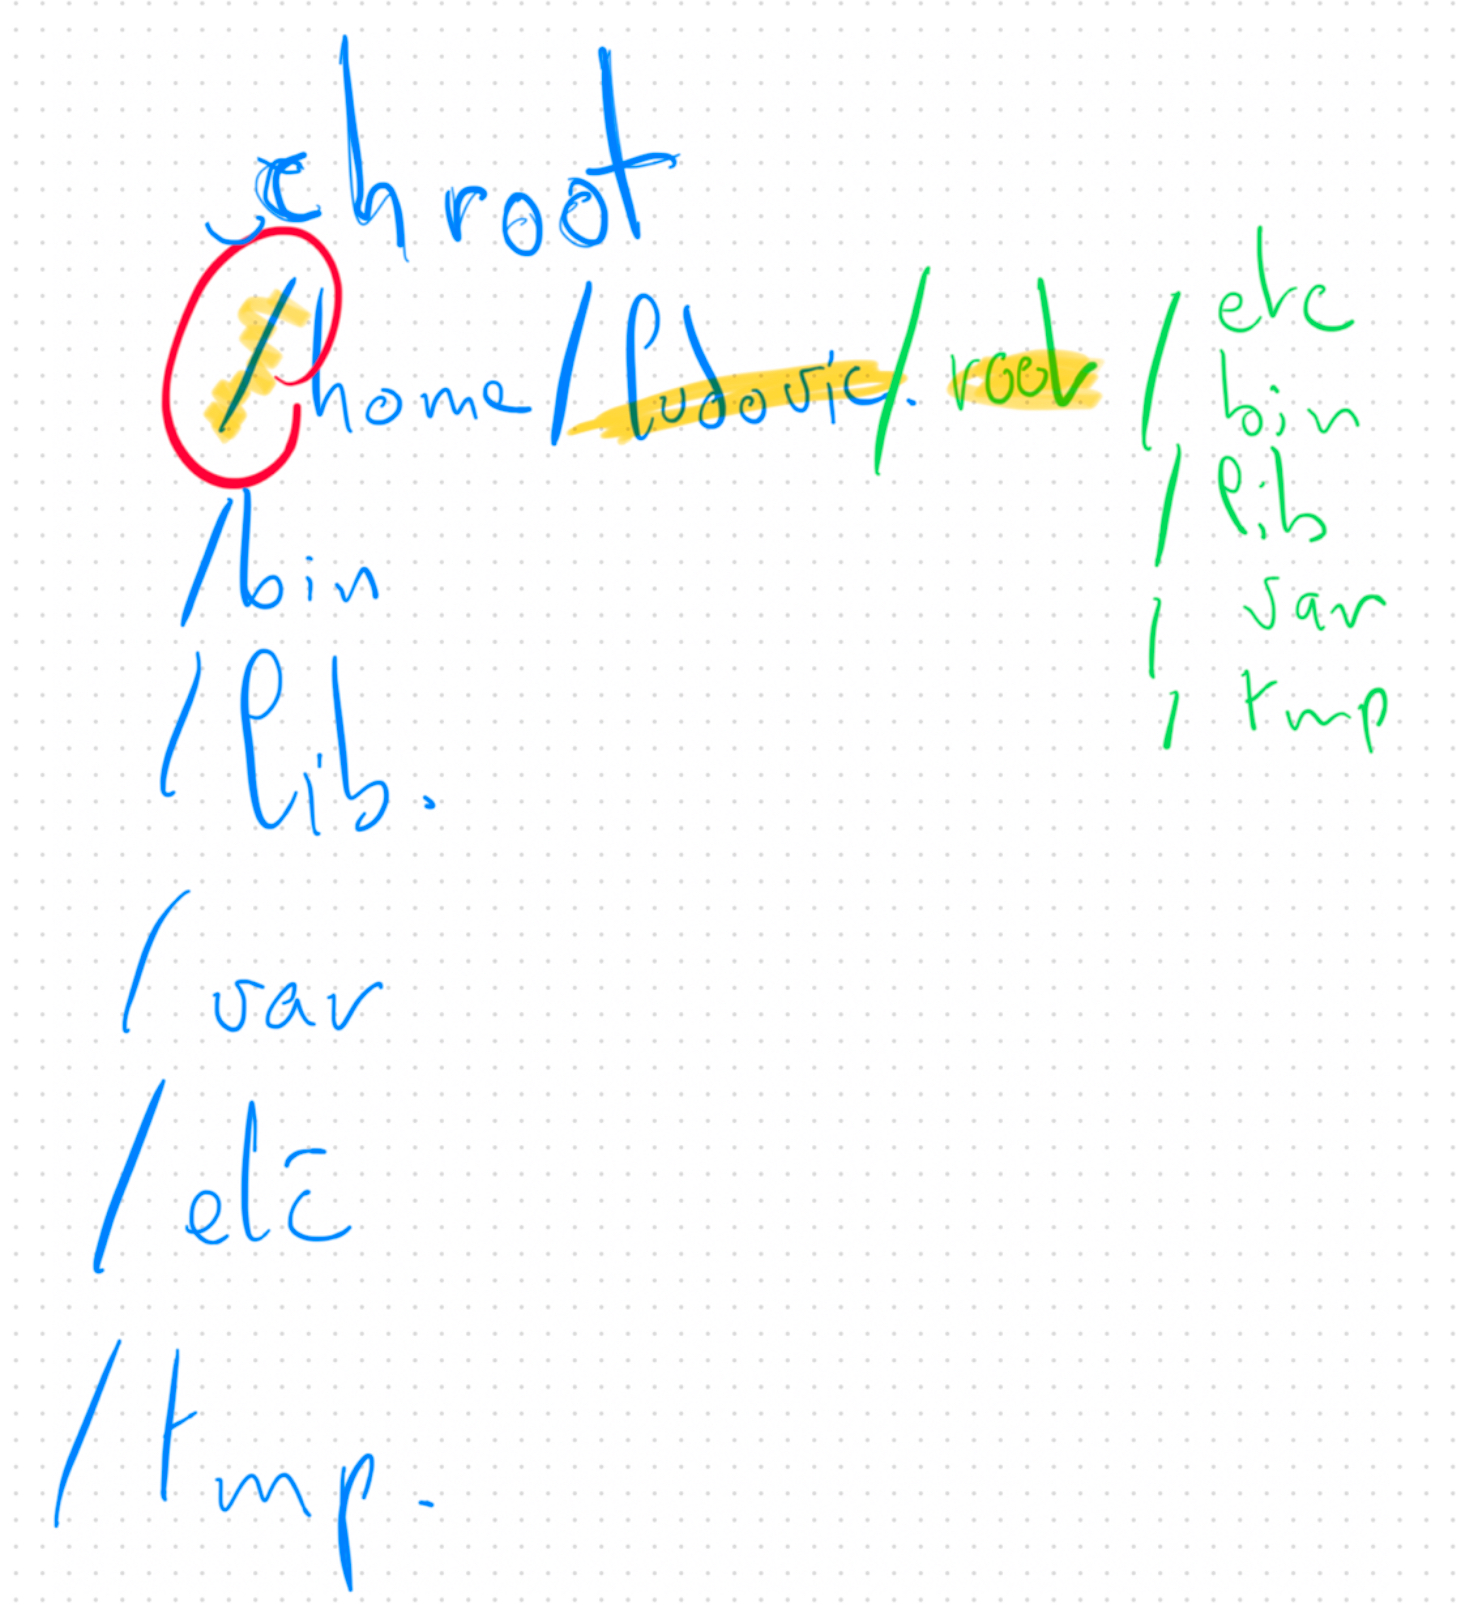 chroot
/home/ludovic./root/etc
bin
/lib
/var
/tmp
/bin
/lib.
/var
/etc
/tmp.